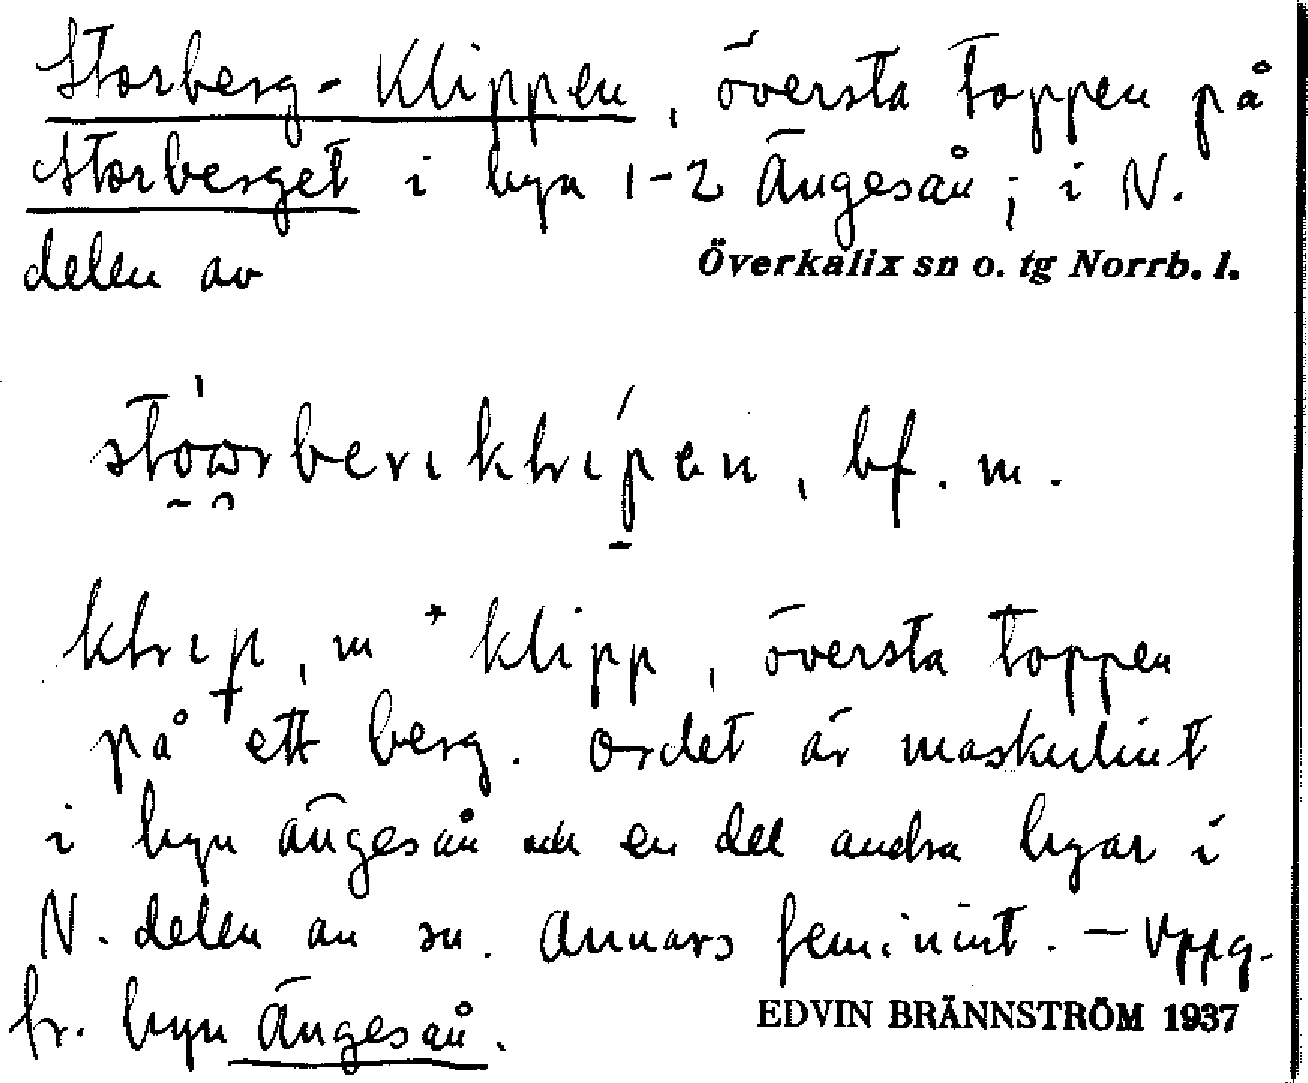 Storberg-Klippen, översta toppen på
Storberget i byn 1-2 Ängesån; i N.
delen av Överkalix sn o. tg Norrb. l.
bf. m.
m * klipp, översta toppen
på ett berg. Ordet är maskulint
i byn Ängesån och en del andra byar i
N. delen av sn. Annars feminint. — Uppg.
fr. byn Ängesån.
EDVIN BRÄNNSTRÖM 1937